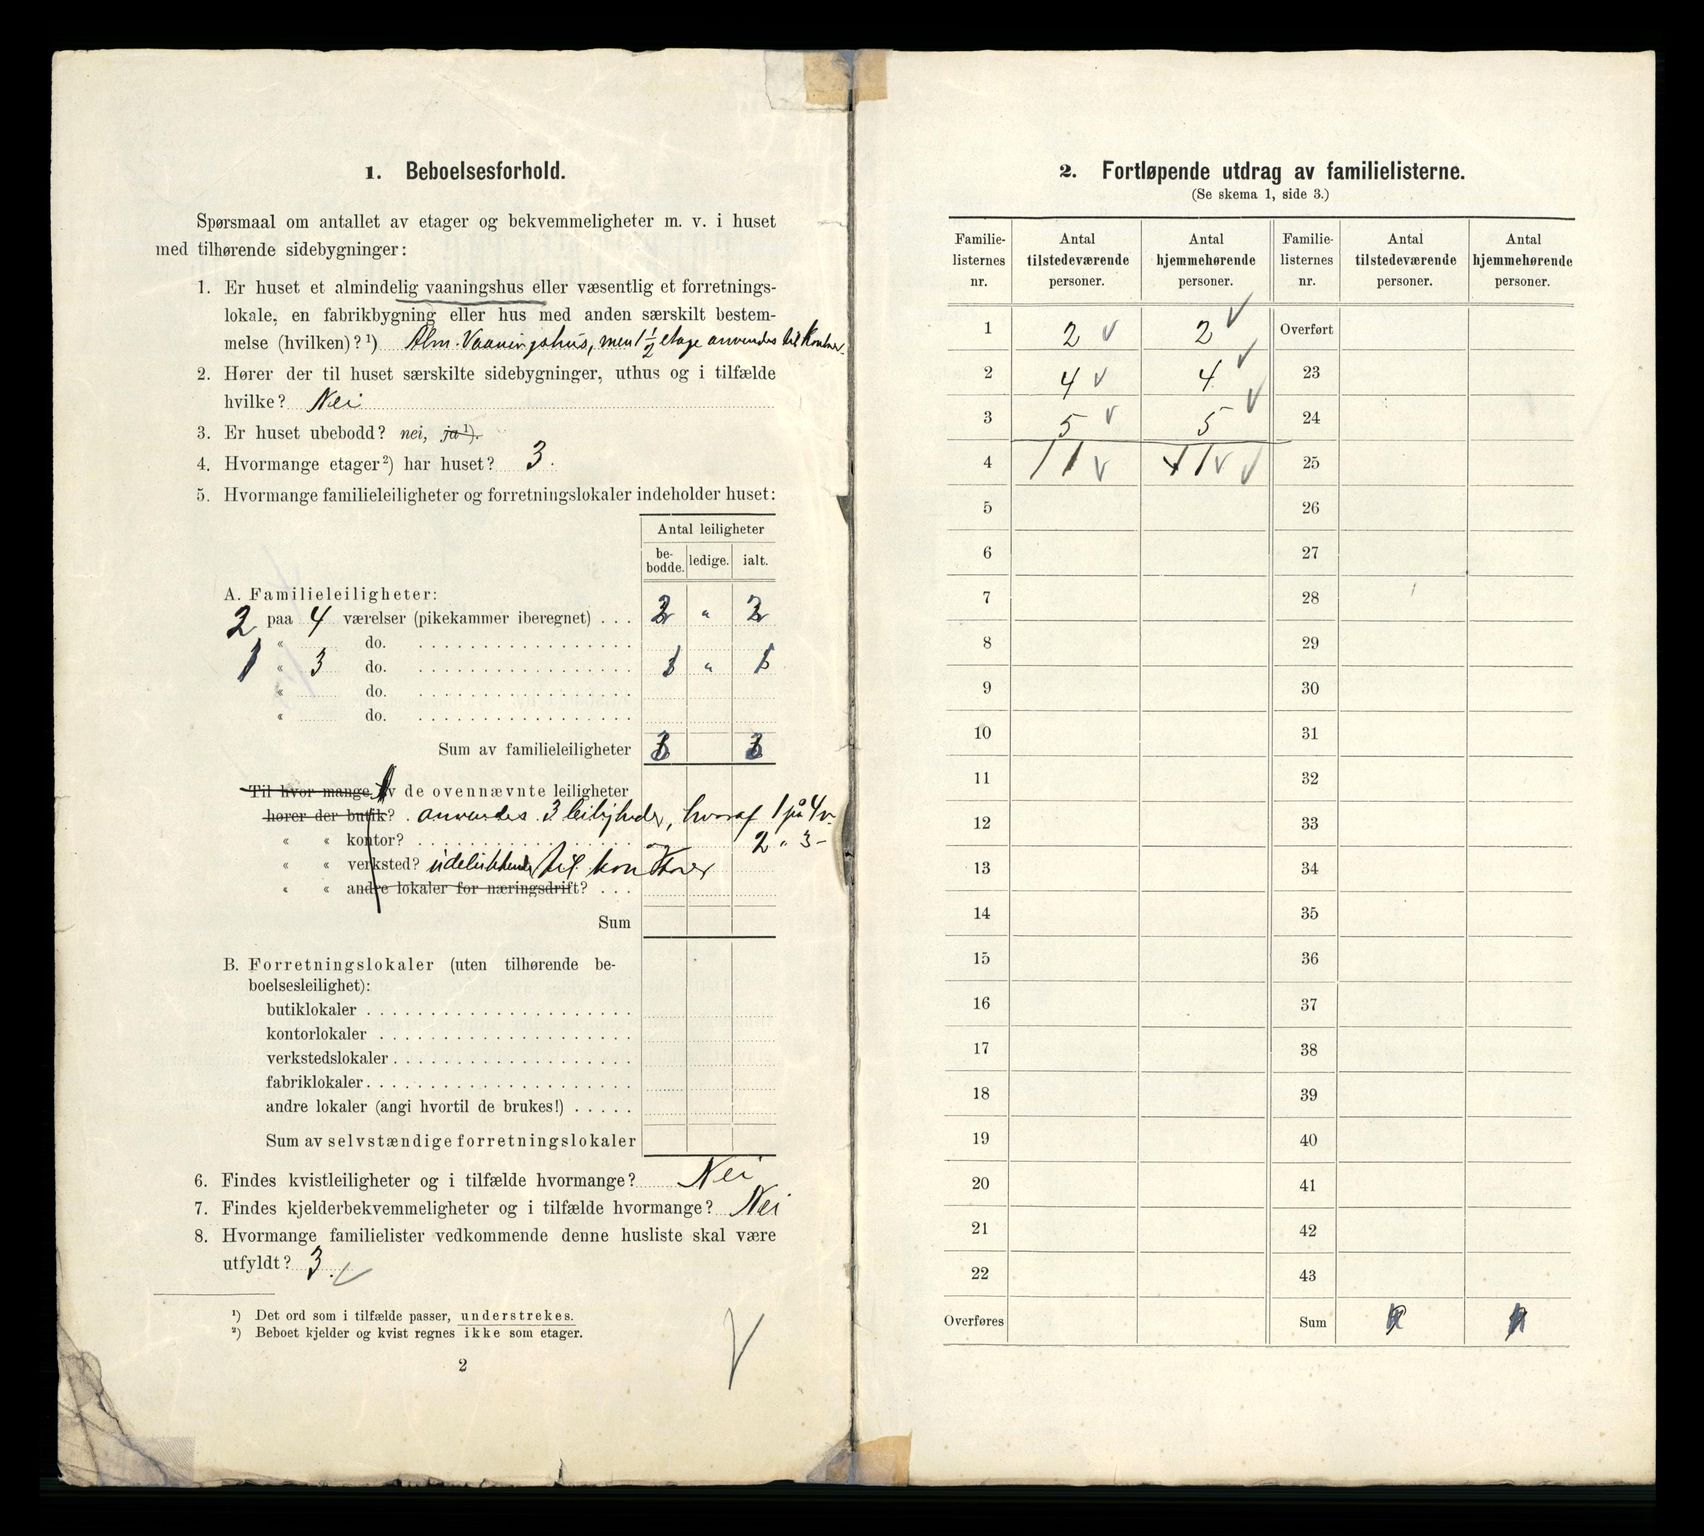 1. Beboelsesforhold.
Spørsmaal om antallet av etager og bekvemmeligheter m. v. i huset
med tilhørende sidebygninger:
1. Er huset et almindelig vaaningshus eller væsentlig et forretnings-
lokale, en fabrikbygning eller hus med anden særskilt bestem-
melse (hvilken)? ¹) Alm. Vaaningshus, men 1 1/2 etage anvendes til Kontor.
2. Hører der til huset særskilte sidebygninger, uthus og i tilfælde
hvilke? Nei
3. Er huset ubebodd? nei, ja ¹).
4. Hvormange etager ²) har huset? 3.
5. Hvormange familieleiligheter og forretningslokaler indeholder huset:
Antal leiligheter
be-
bodde. ledige. ialt.
A. Familieleiligheter:
2 paa 4 værelser (pikekammer iberegnet) . . . 2 " 2
« do. . . . . . . . . . . . . . . . . .
1 « 3 do. . . . . . . . . . . . . . . . . . 1 " 1
« do. . . . . . . . . . . . . . . . . .
« do. . . . . . . . . . . . . . . . . .
Sum av familieleiligheter 3 3
Til hvor mange av de ovennævnte leiligheter
hører der butik? anvendes 3 leiligheder, hvoraf 1 på 4 v.
« « kontor? . . . . . . . . . . . . . . . . og 2 " 3 -
« « verksted? udelukkende til kontorer
« « andre lokaler for næringsdrift? . . .
Sum
B. Forretningslokaler (uten tilhørende be-
boelsesleilighet):
butiklokaler . . . . . . . . . . . . . . . . . . . .
kontorlokaler . . . . . . . . . . . . . . . . . . .
verkstedslokaler . . . . . . . . . . . . . . . . . .
fabriklokaler . . . . . . . . . . . . . . . . . . . .
andre lokaler (angi hvortil de brukes!) . . . . .
Sum av selvstændige forretningslokaler
6. Findes kvistleiligheter og i tilfælde hvormange? Nei
7. Findes kjelderbekvemmeligheter og i tilfælde hvormange? Nei
8. Hvormange familielister vedkommende denne husliste skal være
utfyldt? 3.
¹) Det ord som i tilfælde passer, understrekes.
²) Beboet kjelder og kvist regnes ikke som etager.
2
2. Fortløpende utdrag av familielisterne.
(Se skema 1, side 3.)
Familie- Antal Antal Familie- Antal Antal
listernes tilstedeværende hjemmehørende listernes tilstedeværende hjemmehørende
nr. personer. personer. nr. personer. personer.
1 2 2 Overført
2 4 4 23
3 5 5 24
4 11 11 25
5 26
6 27
7 28
8 29
9 30
10 31
11 32
12 33
13 34
14 35
15 36
16 37
17 38
18 39
19 40
20 41
21 42
22 43
Overføres Sum